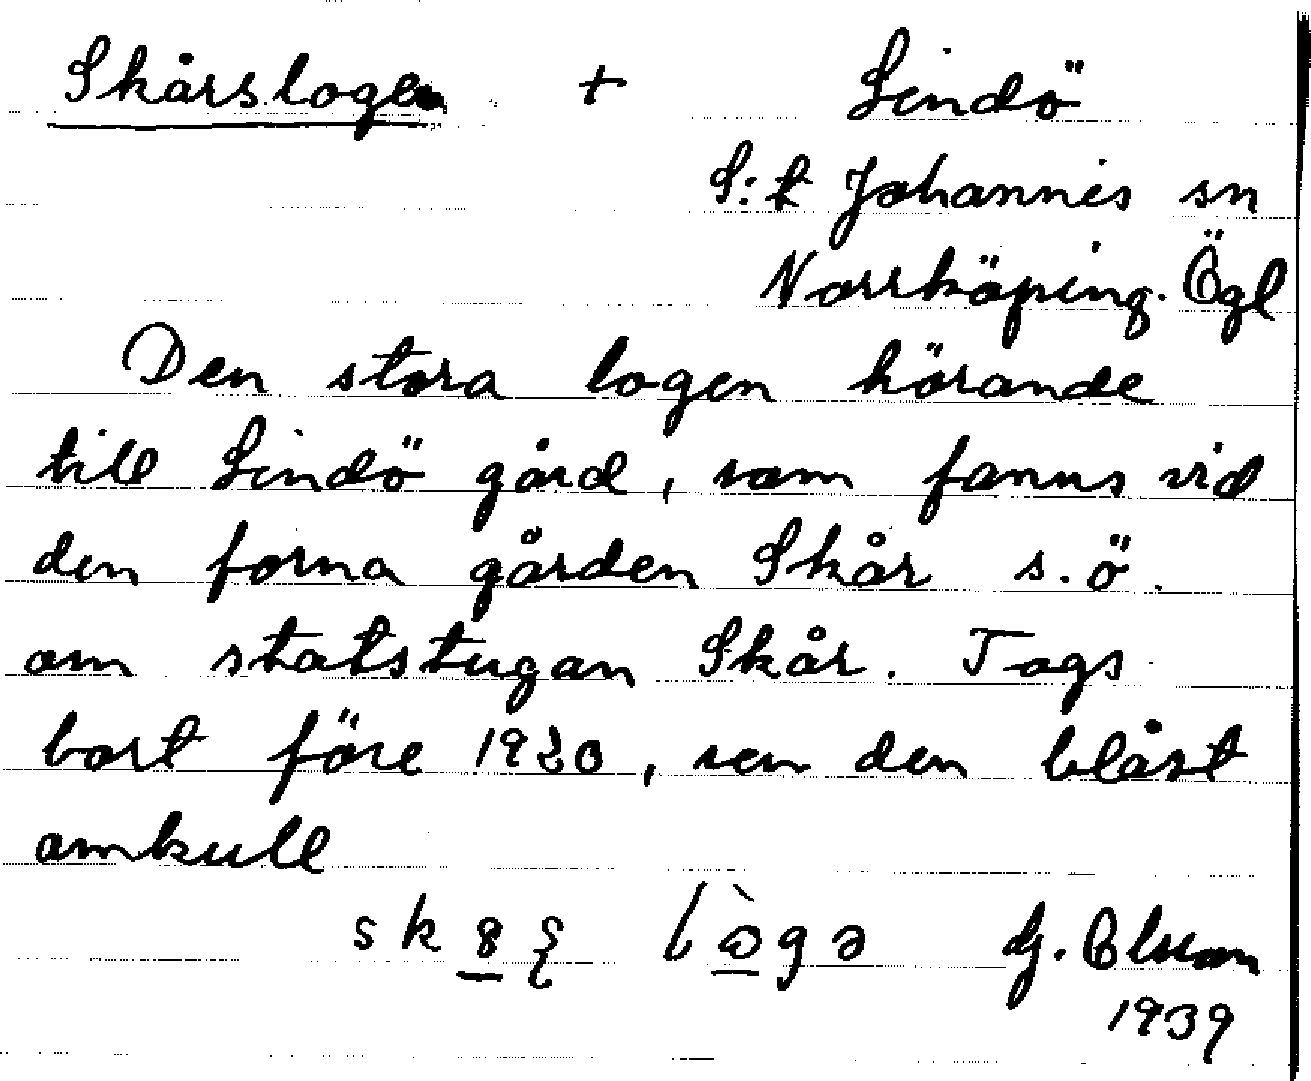 Skårslogen + Lindö
S:t Johannis sn
Norrköping. Ögl
Den stora logen hörande
till Lindö gård, som fanns vid
den forna gården Skår s.ö.
om statstugan Skår. Togs
bort före 1920, sen den blåst
omkull
G. Olsson
1939